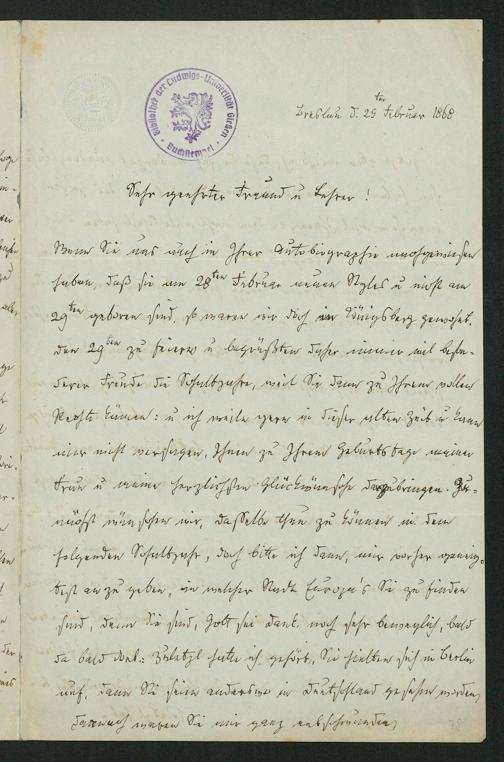 Bibliothek der Ludwigs-Universität Giessen
Buchstempel
Breslau d. 25ten Februar 1868
Sehr geehrter Freund u Lehrer!
Wenn Sie uns auch in Ihrer Autobiographie nachgewiesen
haben, daß sie am 28ten Februar neuen Styles u nicht am
29ten geboren sind, so waren wir doch in Königsberg gewohnt,
den 29ten zu feiern u begrüßten daher immer mit beson-
derer Freude die Schaltjahre, weil Sie dann zu Ihrem vollen
Rechte kamen: u ich weile gern in dieser alten Zeit u kann
mir nicht versagen, Ihnen zu Ihrem Geburtstage meinen
treuen u meine herzlichsten Glückwünsche darzubringen. Zu-
nächst wünschen wir, dasselbe thun zu können in dem
folgenden Schaltjahr, doch bitte ich dann, mir vorher
anzugeben, in welcher Stadt Europa's Sie zu finden
sind, denn Sie sind, Gott sei dank, noch sehr beweglich, bald
da bald dort: Zuletzt hatte ich gehört, Sie hielten sich in Berlin
auf, dann Sie seien anderswo in Deutschland gesehen worden,
darnach waren Sie mir ganz entschwunden,